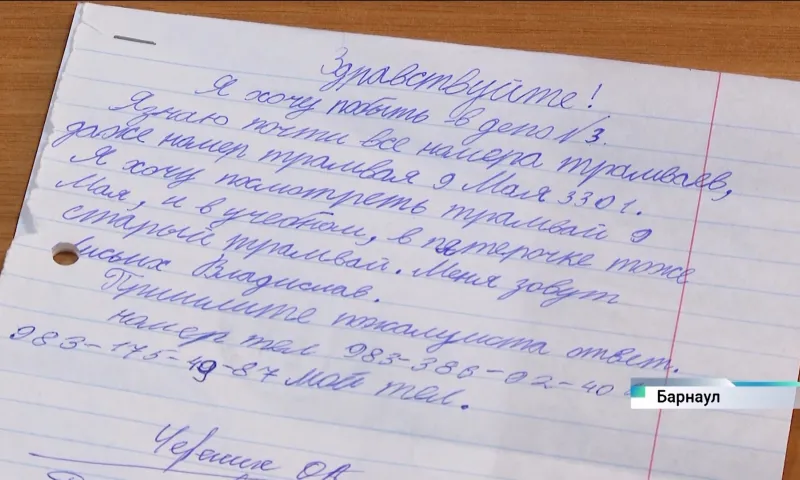 Здравствуйте!
Я хочу побыть в депо №3.
Я знаю почти все номера трамваев,
даже номер трамвая 9 Мая 3301.
Я хочу посмотреть трамвай 9
Мая, и в учебном, в пятерочке тоже
старый трамвай. Меня зовут
Лисьих Владислав.
Пришлите пожалуйста ответ.
номер тел 983-386-02-40
983-175-49-87 мой тел.
Барнаул